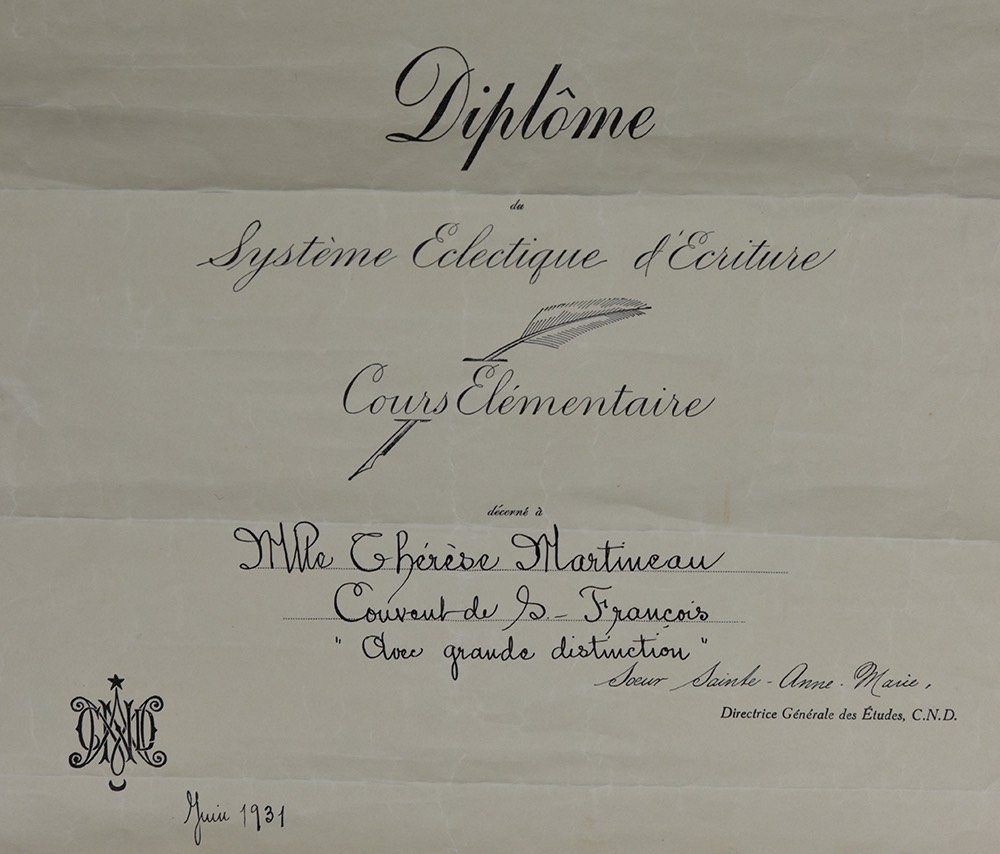 Diplôme
du
Système Eclectique d'Ecriture
Cours Elémentaire
décerné à
Mlle Thérèse Martineau
Couvent de S.- François
"Avec grande distinction"
Soeur Sainte-Anne-Marie,
Directrice Générale des Études, C.N.D.
CND
Juin 1931